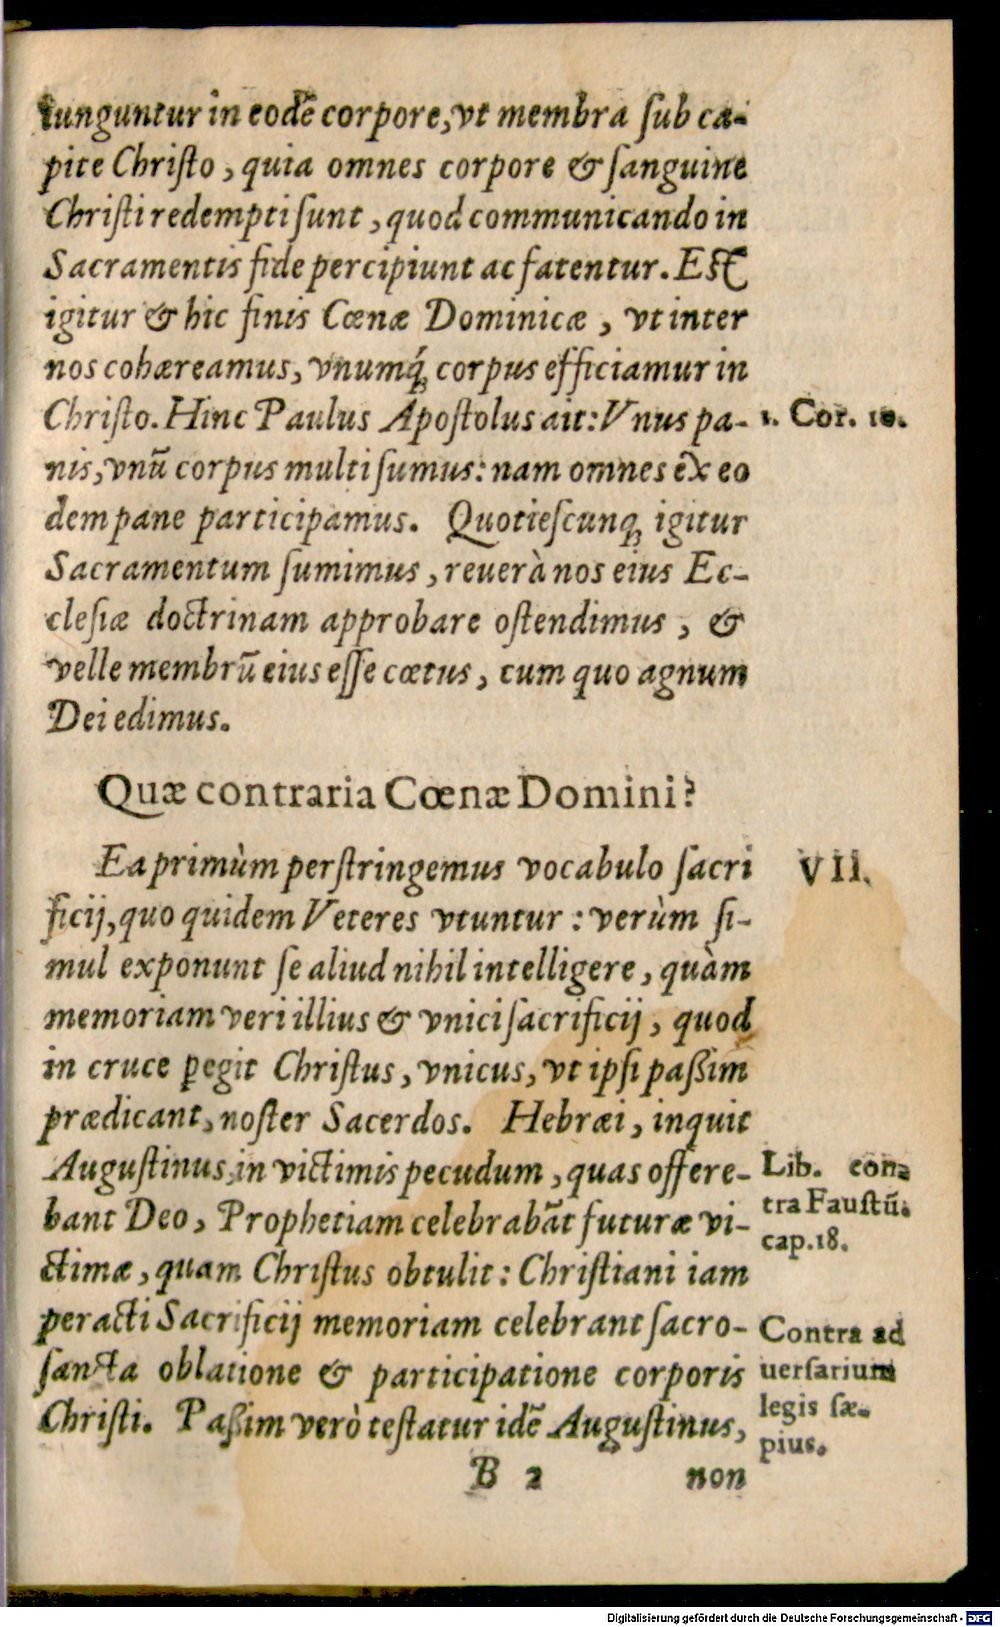 iunguntur in eodē corpore, vt membra ſub ca-
pite Chriſto, quia omnes corpore & ſanguine
Chriſti redempti ſunt, quod communicando in
Sacramentis fide percipiunt ac fatentur. Eſt
igitur & hic finis Cœnæ Dominicæ, vt inter
nos cohæreamus, vnumq́; corpus efficiamur in
Chriſto. Hinc Paulus Apoſtolus ait: Vnus pa-
1. Cor. 10.
nis, vnū corpus multi ſumus: nam omnes ex eo
dem pane participamus. Quotieſcunq; igitur
Sacramentum ſumimus, reuerà nos eius Ec-
cleſiæ doctrinam approbare oſtendimus, &
velle membrū eius eſſe cœtus, cum quo agnum
Dei edimus.
Quæ contraria Cœnæ Domini?
Ea primùm perſtringemus vocabulo ſacri
VII.
ficij, quo quidem Veteres vtuntur: verùm ſi-
mul exponunt ſe aliud nihil intelligere, quàm
memoriam veri illius & vnici ſacrificij, quod
in cruce ꝑegit Chriſtus, vnicus, vt ipſi paßim
prædicant, noſter Sacerdos. Hebræi, inquit
Auguſtinus, in victimis pecudum, quas offere-
Lib. con-
bant Deo, Prophetiam celebrabāt futuræ vi-
tra Fauſtū.
cap. 18.
ctimæ, quam Chriſtus obtulit: Chriſtiani iam
peracti Sacrificij memoriam celebrant ſacro-
Contra ad
ſancta oblatione & participatione corporis
uerſarium
Chriſti. Paßim verò teſtatur idē Auguſtinus,
legis ſæ-
pius.
B 2 non
Digitalisierung gefördert durch die Deutsche Forschungsgemeinschaft - DFG